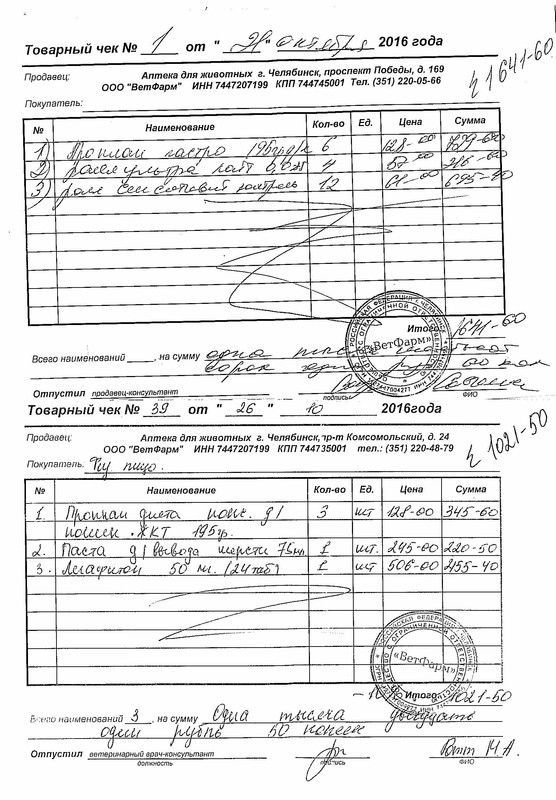 Товарный чек № 1 от " 21 " октября 2016 года
1641-60
Продавец: Аптека для животных г. Челябинск, проспект Победы, д. 169
ООО "ВетФарм" ИНН 7447207199 КПП 744745001 Тел. (351) 220-05-66
Покупатель:
№ Наименование Кол-во Ед. Цена Сумма
1) Проплан гастро 195гр 6 128-00
2) роял ультра лайт 4
3) роял контроль 12 61-00
Итого: 1641-60
Всего наименований , на сумму одна
сорок один
Отпустил продавец-консультант
подпись ФИО
Товарный чек № 39 от " 26 " 10 2016года
1021-50
Продавец: Аптека для животных г. Челябинск,пр-т Комсомольский, д. 24
ООО "ВетФарм" ИНН 7447207199 КПП 744735001 тел.: (351) 220-48-79
Покупатель. Физ лицо.
№ Наименование Кол-во Ед. Цена Сумма
1. Проплан диета конс. д/ 3 шт 128-00 345-60
кошек ЖКТ 195гр.
2. Паста д/вывода шерсти 75мл. 1 шт. 245-00 220-50
3. Легафитон 50 мг. (24таб) 1 шт 506-00 455-40
«ВетФарм»
Итого: 1021-50
Всего наименований 3 , на сумму Одна тысяча двадцать
один рубль 50 копеек
Отпустил ветеринарный врач-консультант
должность подпись ФИО